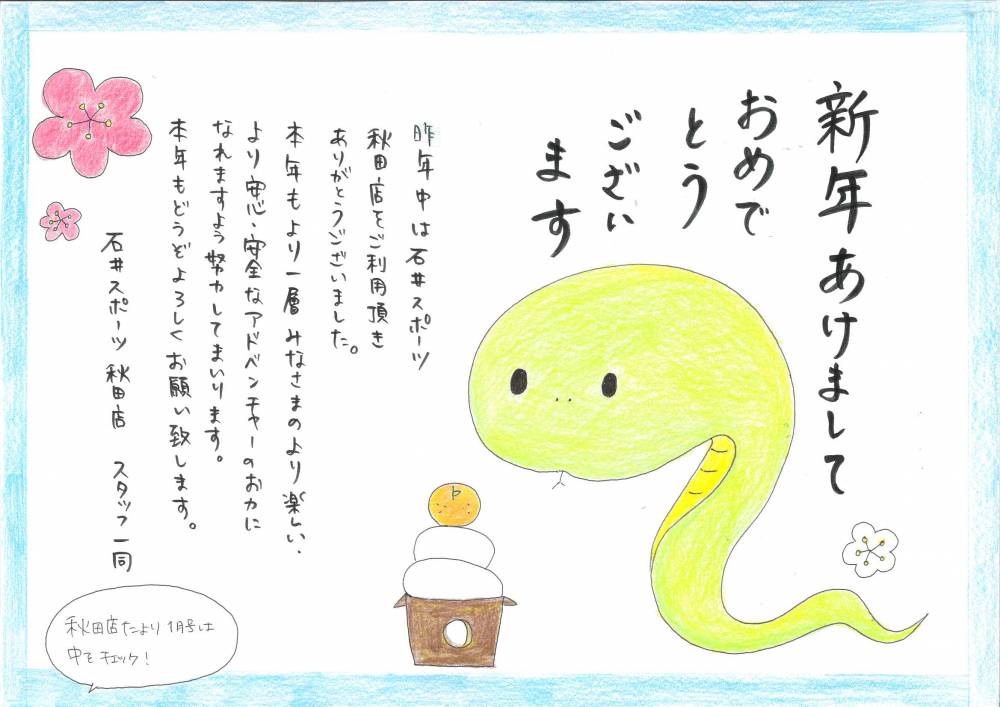 新年あけまして
おめで
とう
ござい
ます
昨年中は石井スポーツ
秋田店をご利用頂き
ありがとうございました。
本年もより一層みなさまのより楽しい、
より安心、安全なアドベンチャーのお力に
なれますよう努力してまいります。
本年もどうぞよろしくお願い致します。
石井スポーツ 秋田店 スタッフ一同
秋田店だより 1月号は
中をチェック!